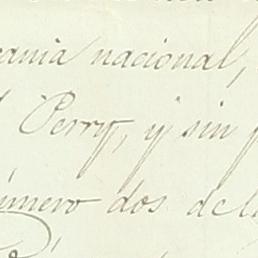 nacional,
Perry, y sin
número dos de la